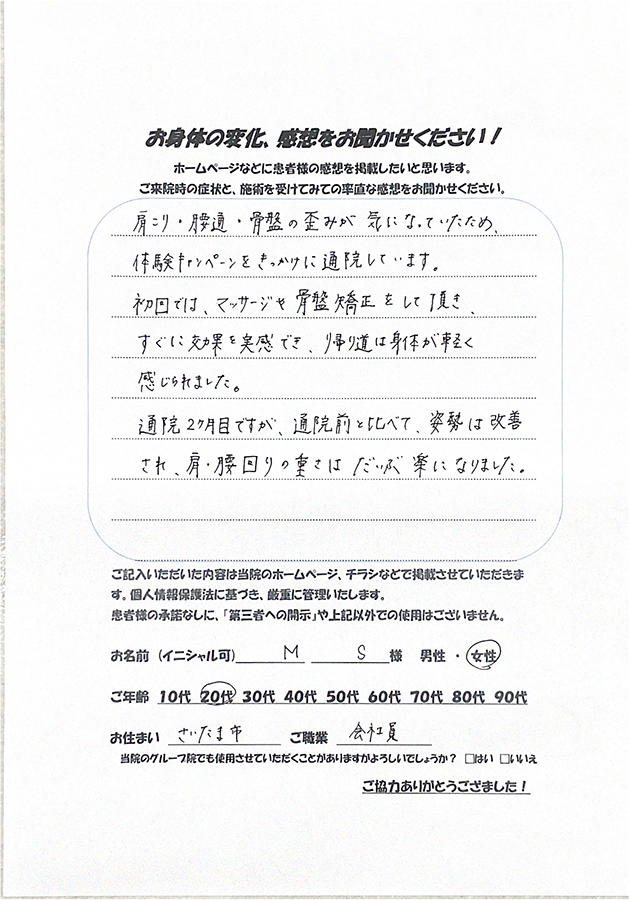 お身体の変化、感想をお聞かせください！
ホームページなどに患者様の感想を掲載したいと思います。
ご来院時の症状と、施術を受けてみての率直な感想をお聞かせください。
肩こり・腰痛・骨盤の歪みが 気になっていたため、
体験キャンペーンをきっかけに通院しています。
初回では、マッサージや骨盤矯正をして頂き、
すぐに効果を実感でき、帰り道は身体が軽く
感じられました。
通院2ヶ月目ですが、通院前と比べて、姿勢は改善
され、肩・腰回りの重さは だいぶ 楽になりました。
ご記入いただいた内容は当院のホームページ、チラシなどで掲載させていただきま
す。個人情報保護法に基づき、厳重に管理いたします。
患者様の承諾なしに、「第三者への開示」や上記以外での使用はございません。
お名前（イニシャル可） M S 様 男性 ・ 女性
ご年齢 10代 20代 30代 40代 50代 60代 70代 80代 90代
お住まい さいたま市 ご職業 会社員
当院のグループ院でも使用させていただくことがありますがよろしいでしょうか？ □はい □いいえ
ご協力ありがとうござました！